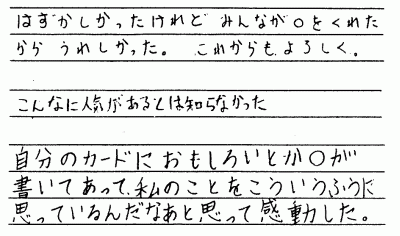 はずかしかったけれど みんなが○をくれた
から うれしかった。 これからも よろしく。
こんなに人気があるとは知らなかった
自分のカードにおもしろいとか○が
書いてあって、私のことをこういうふうに
思っているんだなあと思って感動した。